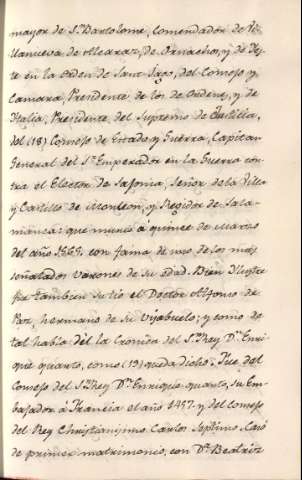 mayor de Sn. Bartolome, Comendador de Vi-
llanueva de Alcaraz, de Ornachos, y de
te en la orden de Santiago, del Consejo y
Camara, Presidente de los de Ordenes, y de
Italia, Presidente del Supremo de Justicia,
del (18) Consejo de Estado y Guerra, Capitan
General del Sr. Emperador en la Guerra con-
tra el Elector de Sajonia, Señor de la Villa
y Castillo de Monleon, y Regidor de Sala-
manca: que murió a quince de Marzo
del año con fama de uno de los mas
señalados varones de su edad. Bien Ilustre
fue tambien su tio el Doctor Alfonso de
Paz, hermano de su Visabuelo; y como de
tal habla de el la Cronica del Sr. Rey Dn. Enri-
que quarto, como (19) queda dicho. Fue del
Consejo del Sr. Rey Dn. Enrique quarto, su Em-
bajador à Francia el año 1457. y del consejo
del Rey Christianisimo Carlos Septimo. Casó
de primer matrimonio, con Dª. Beatriz